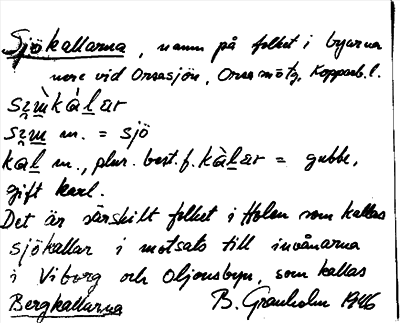 Sjökallarna, namn på folket i byarna
nere vid Orsasjön, Orsa sn ötg, Kopparb. l.
sɪ̯m̀kàl̲ær
sɪ̯m̲ m. = sjö
kal̲ m., plur. best. f. kàl̲ær = gubbe,
gift karl.
Det är särskilt folket i Holen som kallas
sjökallar i motsats till invånarna
i Viborg och Oljonsbyn, som kallas
Bergkallarna B. Granholm 1946